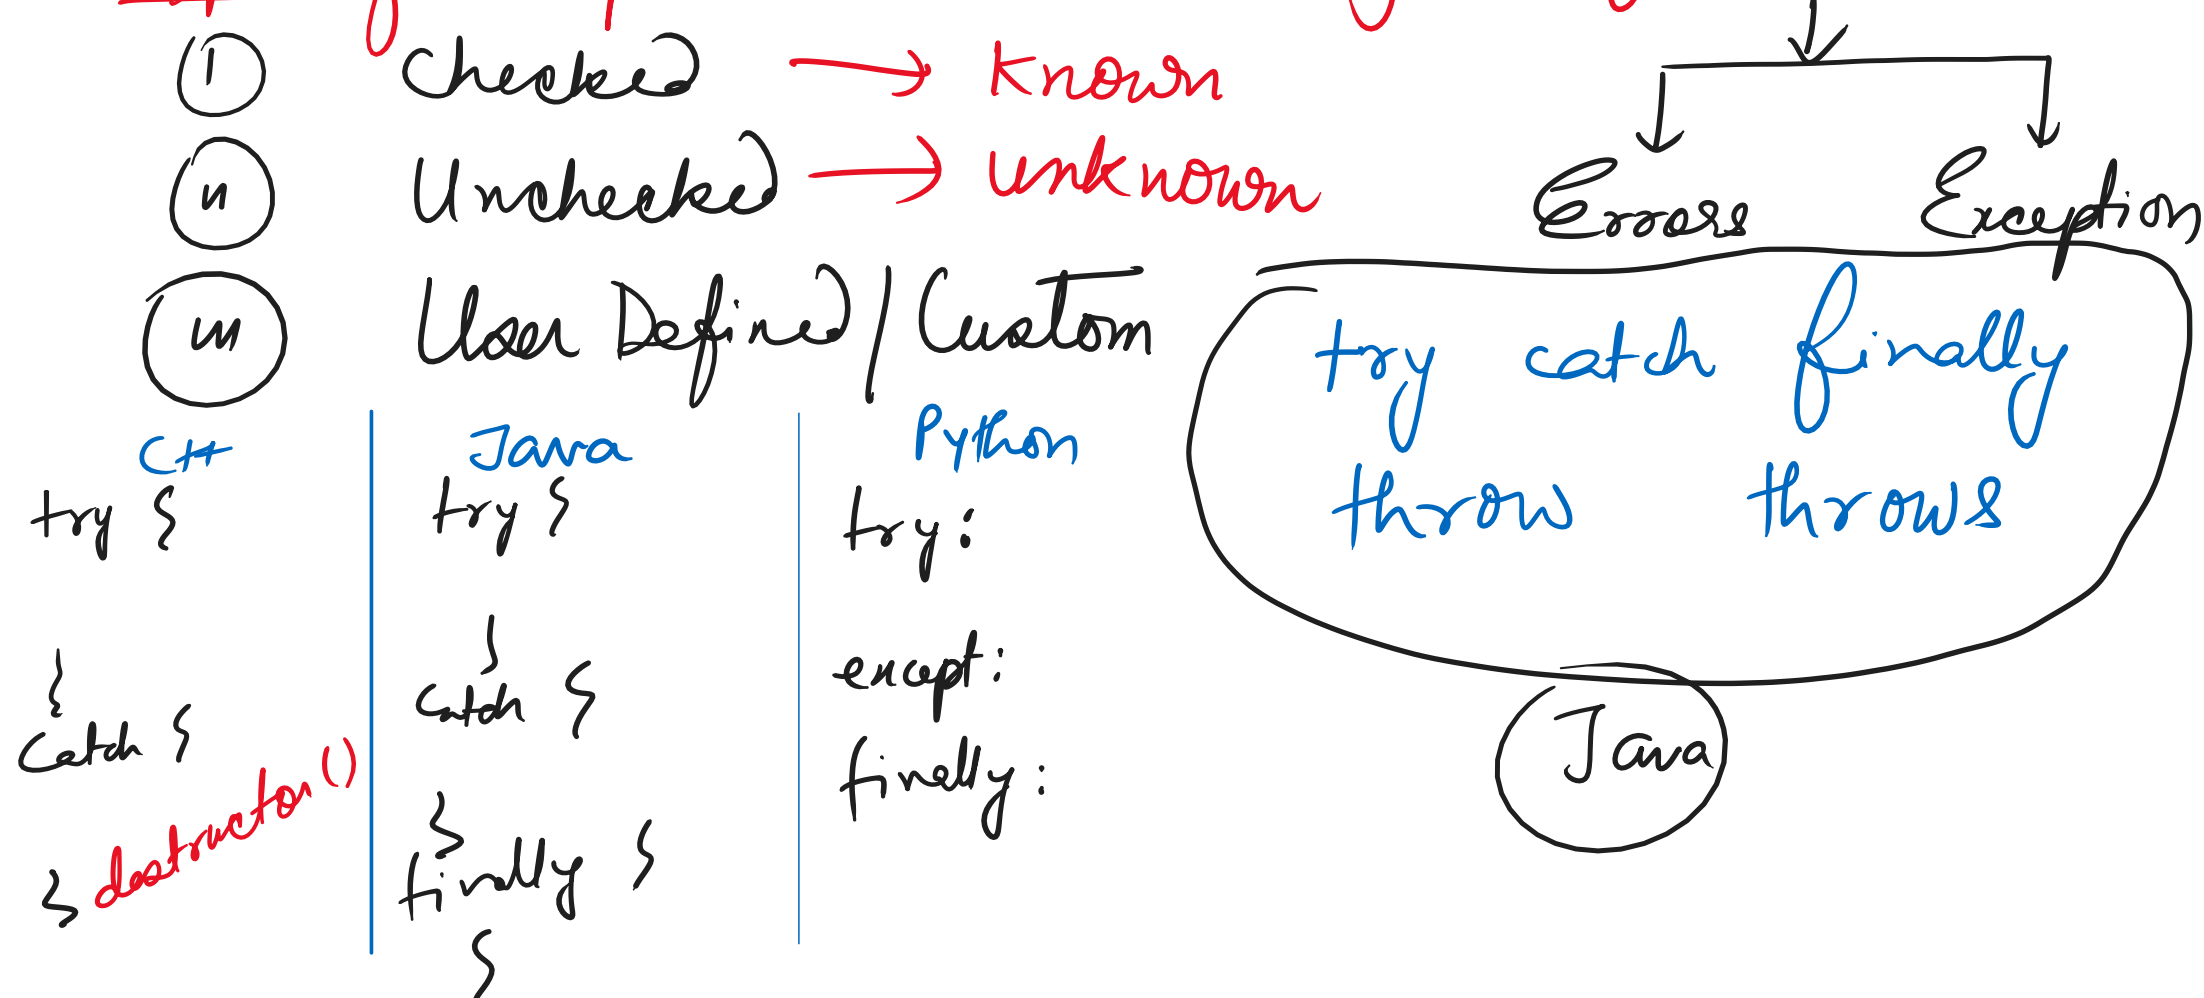 1 Checked → Known
11 Unchecked → Unknown
111 User Defined / Custom
Errors Exception
try catch finally
throw throws
Java
C++
try {
}
catch {
} destructor ()
Java
try {
}
catch {
}
finally {
}
Python
try :
except :
finally :